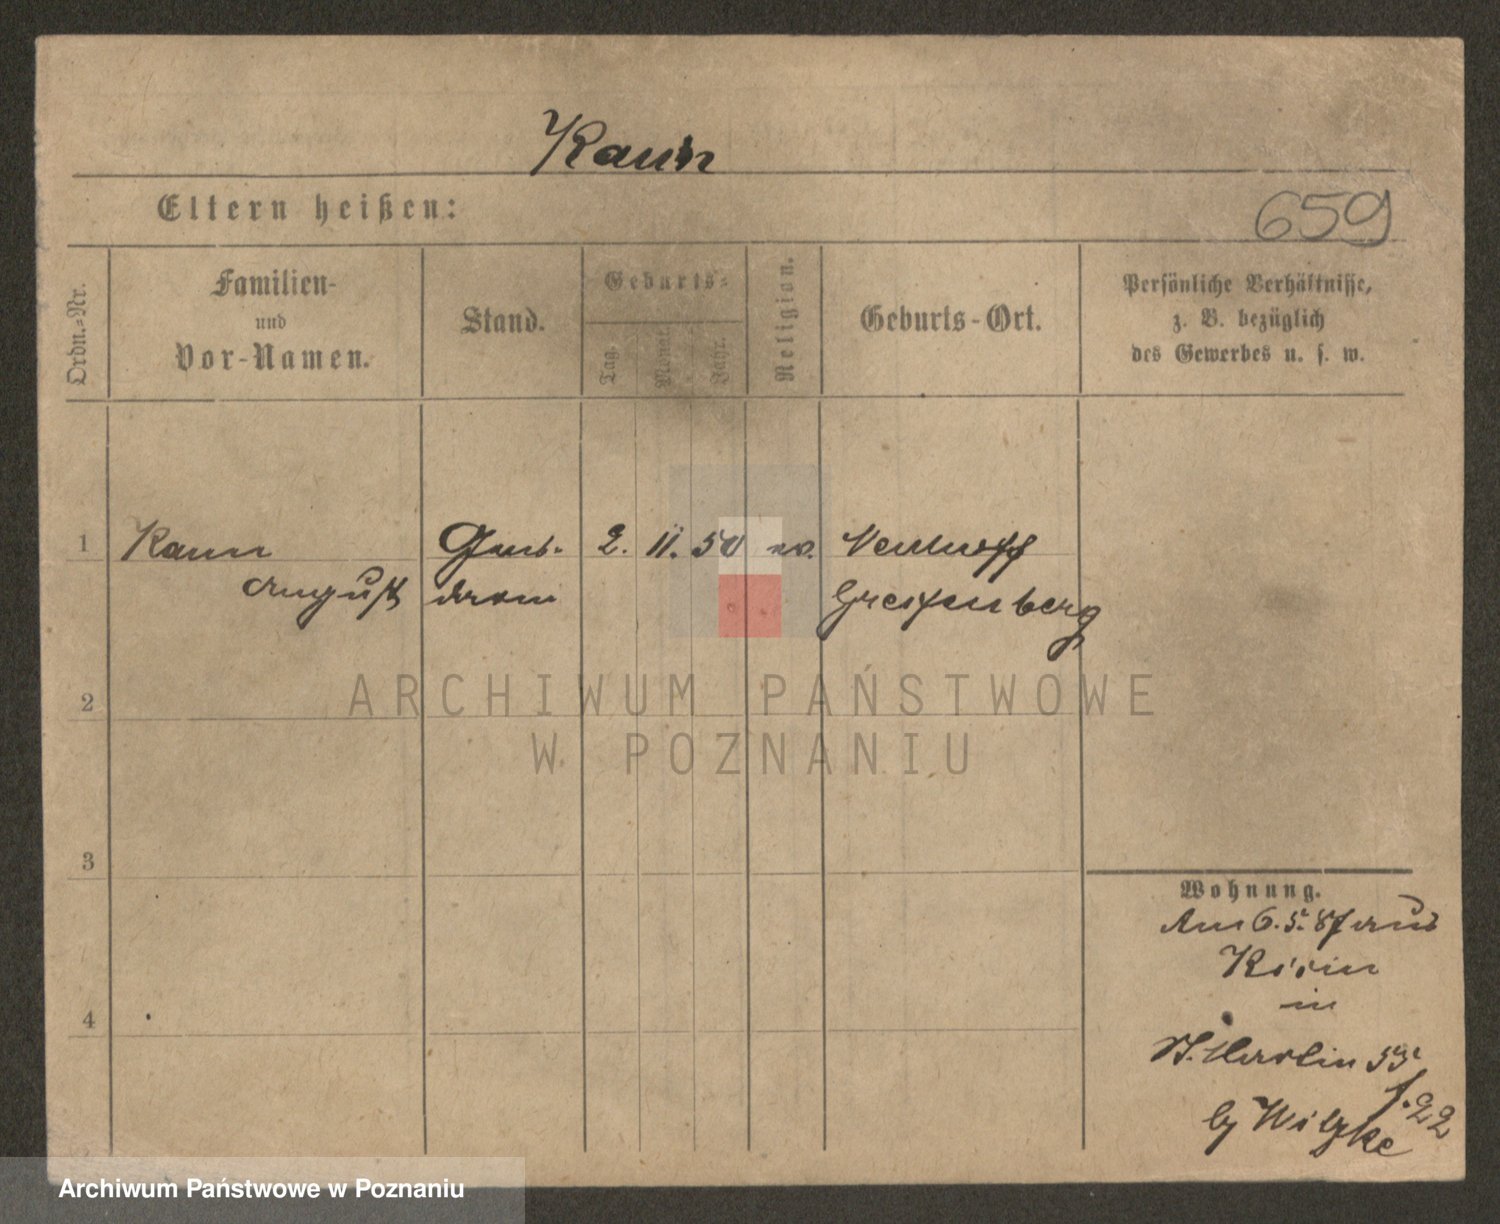 Kaun
Eltern heißen:
659
Ordn.-Nr.
Familien-
und
Vor-Namen.
Stand.
Geburts-
Tag.
Monat.
Jahr.
Religion.
Geburts-Ort.
Persönliche Verhältnisse,
z. B. bezüglich
des Gewerbes u. s. w.
1
Kaun
August
2. 11. 50
Neuhoff
Greifenberg
2
3
4
Wohnung.
Am 6. 5. 87 aus
in
St. Martin 55
f. 22
by Wilzke
ARCHIWUM PAŃSTWOWE
W POZNANIU
Archiwum Państwowe w Poznaniu